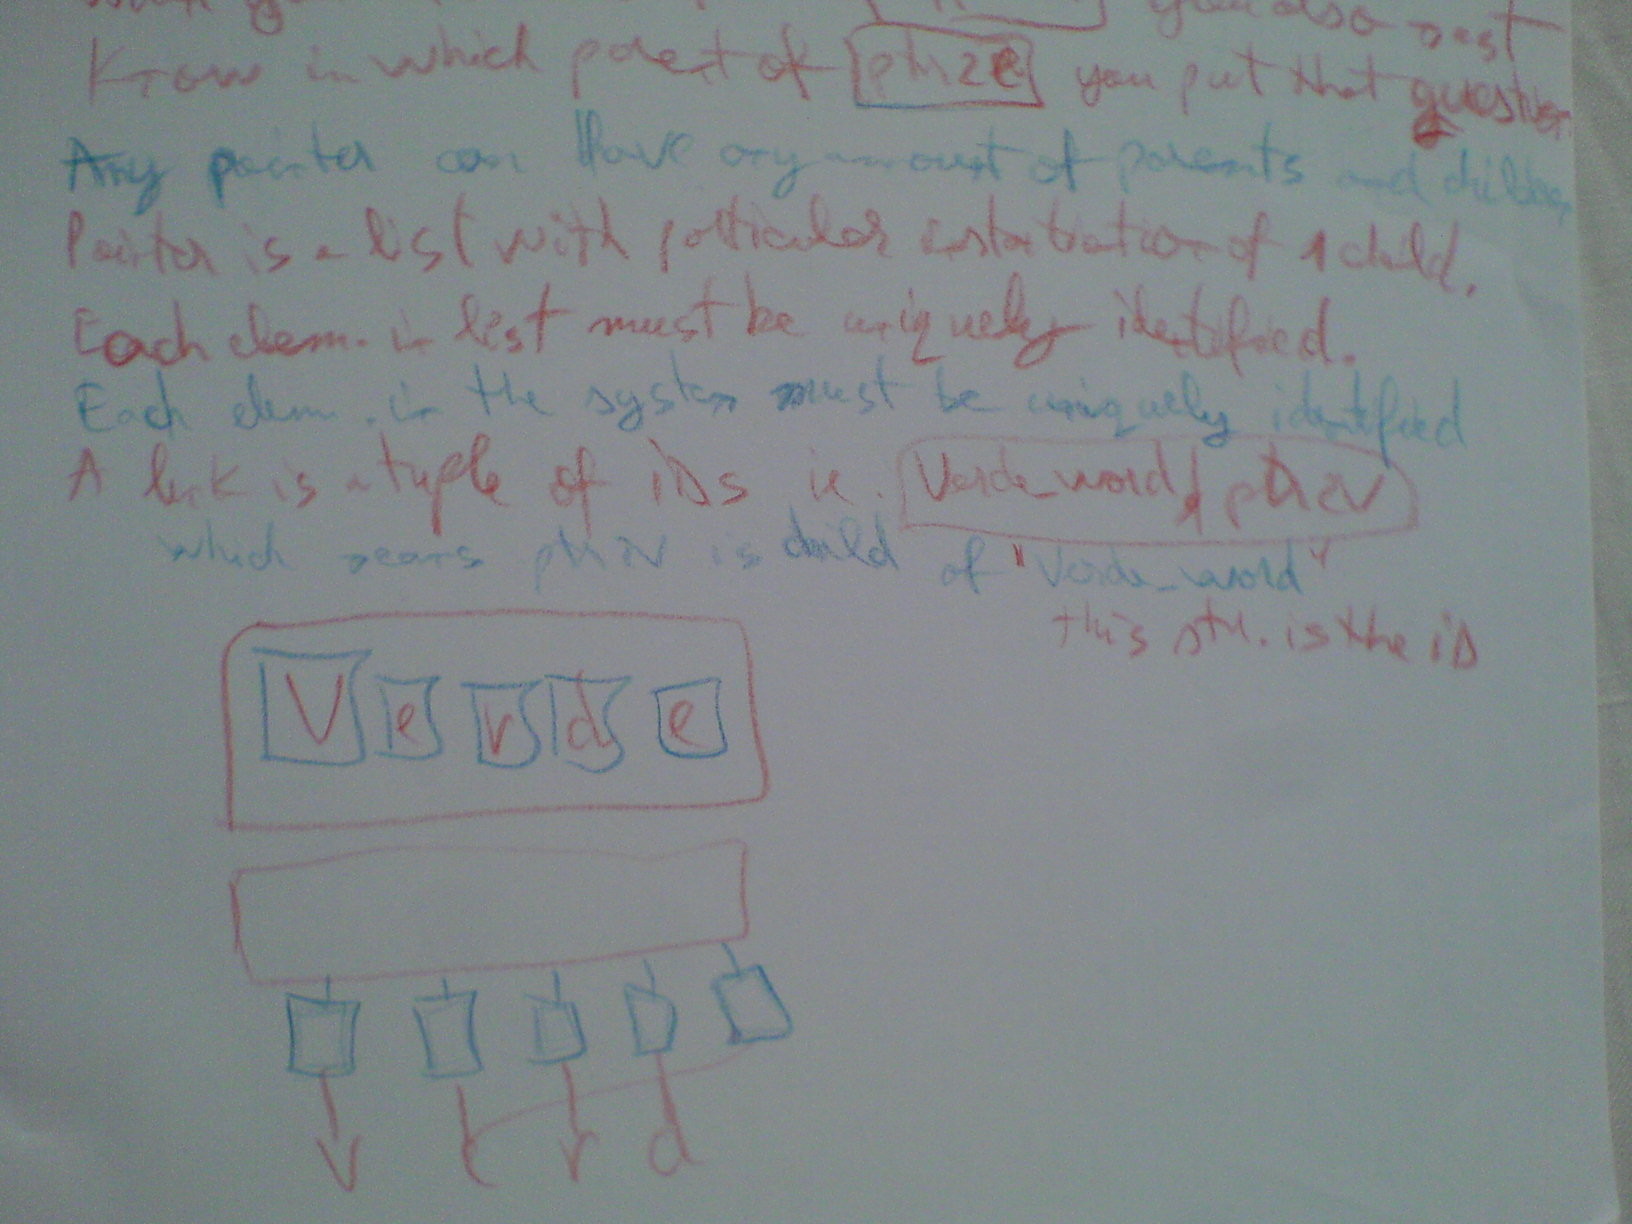 you also
know in which parent of ptr2e you put that question
Any pointer can have any amount of parents and children
Pointer is a list with particular of 1 child.
Each elem. in list must be uniquely identified.
Each elem. in the system must be uniquely identified
A link is a tuple of iDs ie. Verde_word, ptr2V
which means ptr2V is child of "Verde_word"
this ptr. is the iD
V e r d e
V e r d